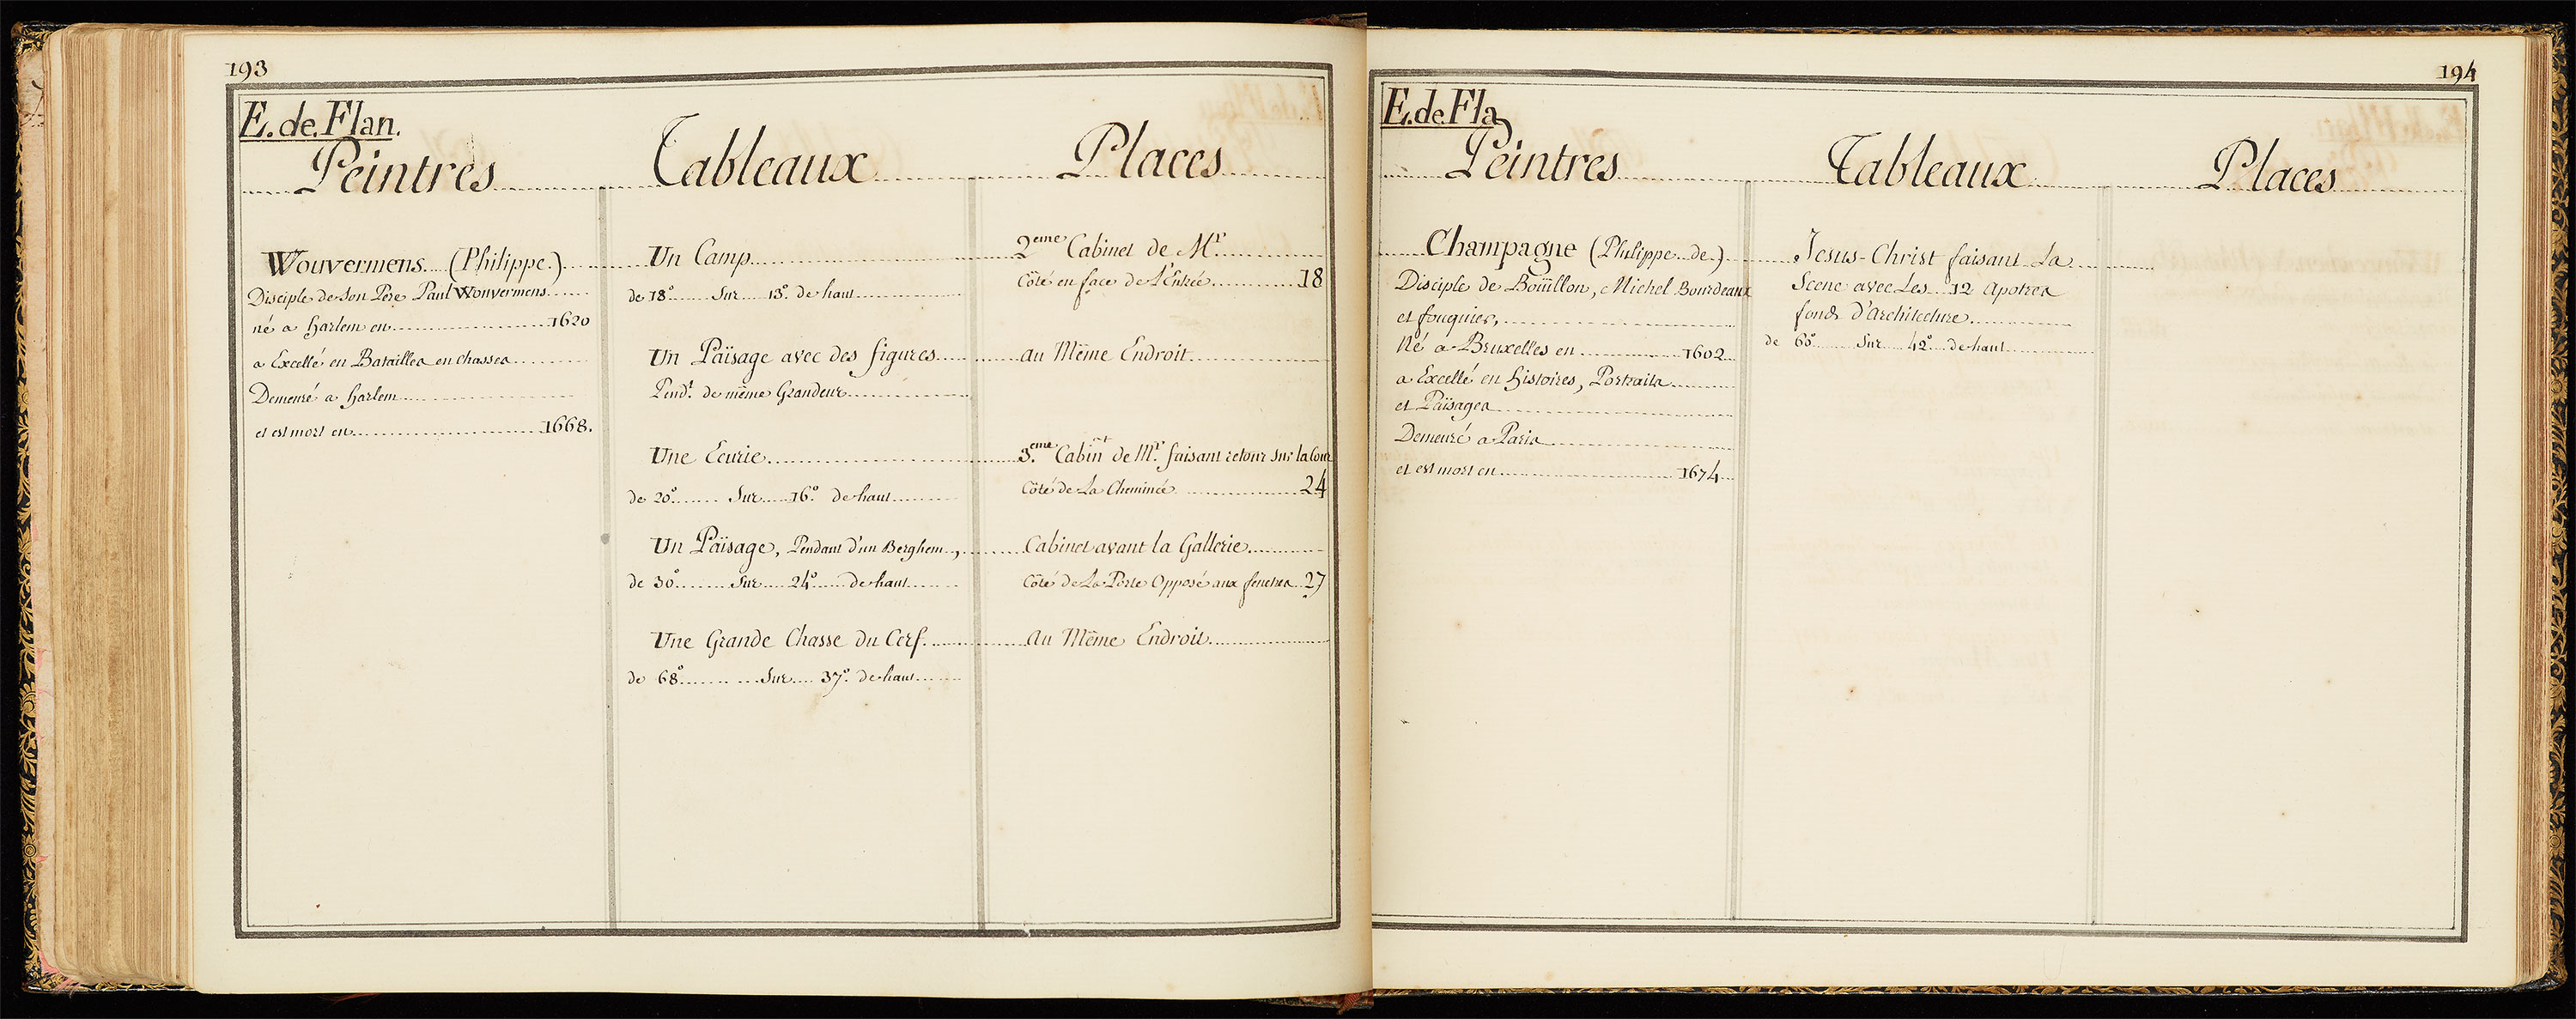 193
E. de. Flan.
Peintres
Tableaux
Places
Wouvermens (Philippe.)
Disciple de son Pere Paul Wouvermens
né a Harlem en 1620
a Excellé en Batailles en chasses
Demeuré a Harlem
et est mort en 1668.
Un Camp
de 18° Sur 13° de haut
Un Païsage avec des figures
Pend.t de même Grandeur
Une Ecurie
de 20° Sur 16° de haut
Un Païsage, Pendant d'un Berghem,
de 30° Sur 24° de haut
Une Grande Chasse du Cerf.
de 68° Sur 37° de haut
2eme Cabinet de Mr
Côté en face de L'Entrée 18
au Même Endroit
3.eme Cabint de Mr. faisant retour sur la Cour
Côté de La Cheminée 24
Cabinet avant la Gallerie
Côté de La Porte Opposé aux fenetres 27
Au Même Endroit
194
E. de. Fla
Peintres
Tableaux
Places
Champagne (Philippe de)
Disciple de Boüillon, Michel Bourdeaux
et fouquier,
Né a Bruxelles en 1602
a Excellé en Histoires, Portraits
et Païsages
Demeuré a Paris
et est mort en 1674
Jesus-Christ faisant La
Scene avec Les 12 Apotres
fonds d'Architecture
de 60° Sur 42° de haut